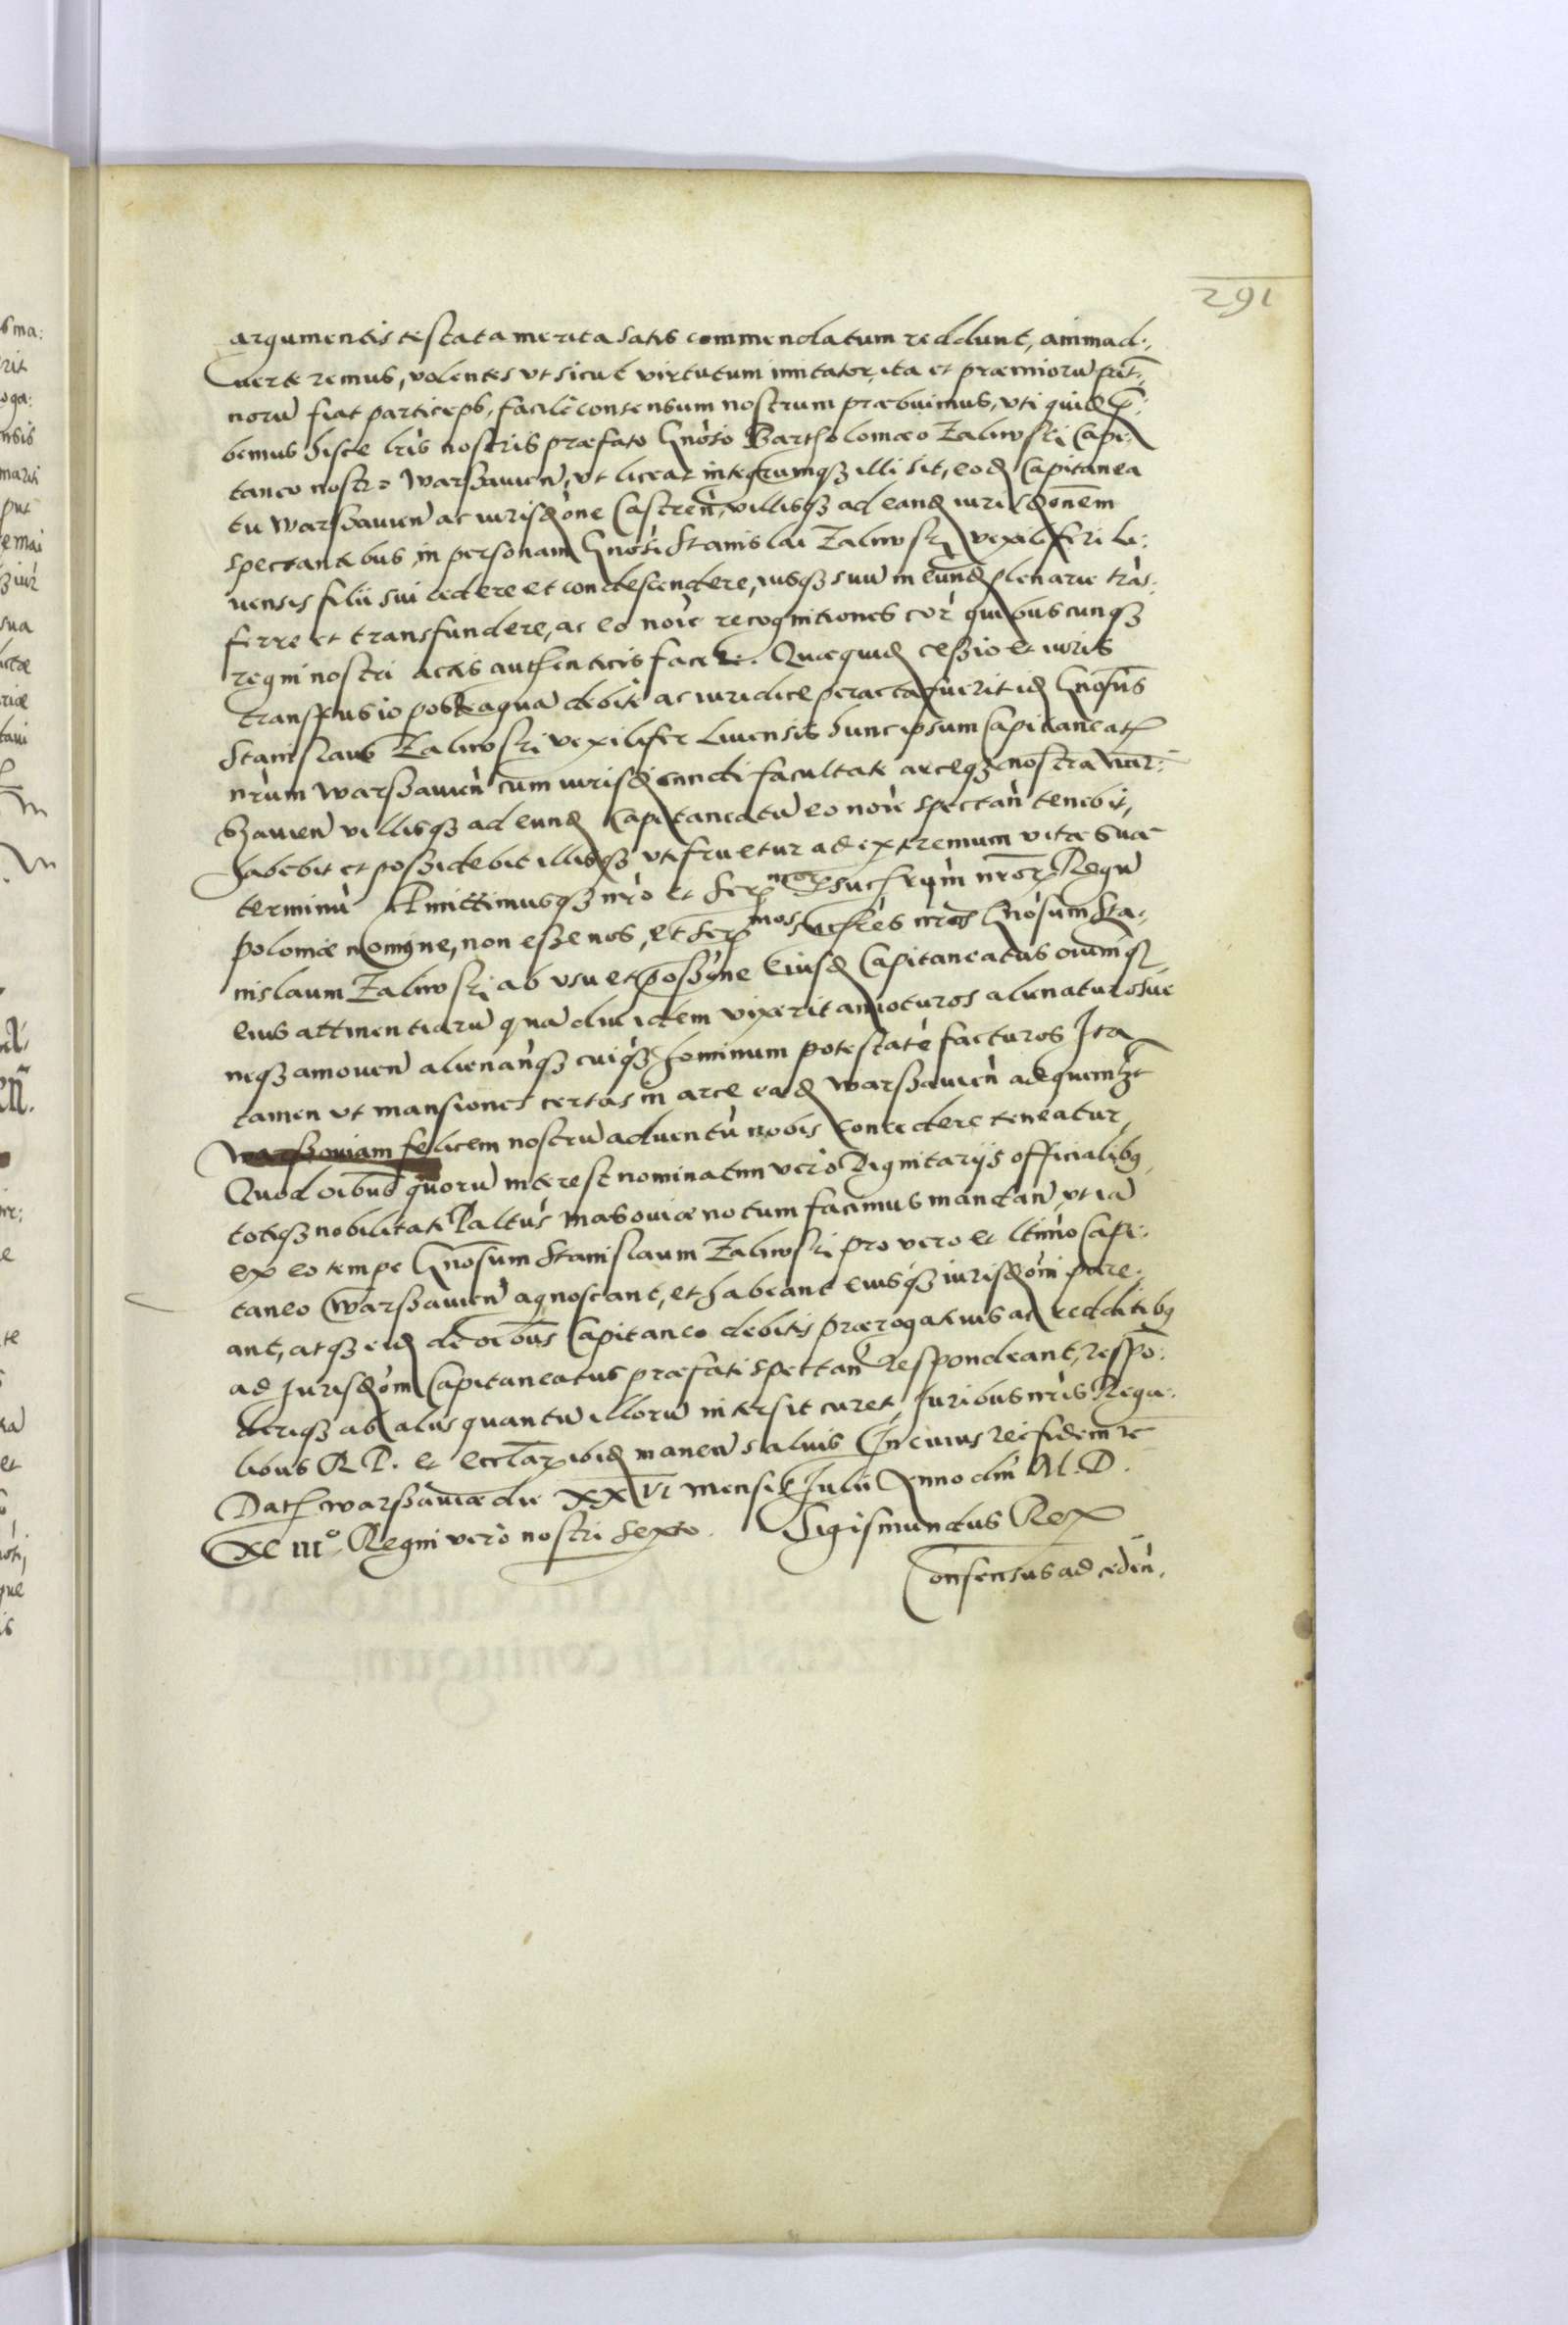 291
argumentis testata merita satis commendatum reddunt, animad:
uerteremus, volentes vt sicut virtutum imitator, ita et præmiorū pat:
norū fiat particeps, facile consensum nostrum præbuimus, vti quidē p̄:
bemus hisce lr̄is nostris præfato Gnoso Bartholomæo Zaliwski Capi:
taneo nostro Warschauien̄, vt liceat integrumq̄ illi sit, eod̄ Capitanea
tu Warschauien̄ ac iurisd̄one Castren̄, villisq̄ ad eand̄ iurisd̄onem
spectantibus, in personam Gnosi Stanislai Zaliwski vexilliferi Li:
uensis filii sui cedere et condescendere, iusq̄ suū in eund̄ plenarie trās:
ferre et transfundere, ac eo noīe recognitiones cor̄ quibuscunq̄
regni nostri actis authenticis facere. Quæquid̄ cessio et iuris
transfusio posteaquā debite ac iuridice peracta fuerit id̄ Gnosus
Stanislaus Zaliwski vexilifer Liuensis hunc ipsum Capitaneat̄
nr̄um Warschauien̄ cum iurisdicundi facultate arceq̄ nostra War:
schauien̄ villisq̄ ad eund̄ Capitaneatū eo noīe spectan̄ tenebit,
habebit et possidebit illisq̄ vtifruetur ad extremum vitæ suæ
terminū Promittimusq̄ nr̄o et Ser̄ mor̄ succr̄um nr̄or̄ Regū
Poloniæ nomine, non esse nos, et Ser̄ mos succr̄es nr̄os Gnosum Sta:
nislaum Zaliwski ab vsu et poss̄ione Eiusd̄ Capitaneatus oīumq̄
eius attinentiarū quādiu idem vixerit amoturos alienaturosue
neq̄ amouen̄ alienan̄q̄ cuiq̄ hominum potestatē facturos Ita
tamen vt mansiones certas in arce ead̄ Warschauien̄ ad quemlt
Warschouiam felicem nostrū aduentū nobis concedere teneatur,
Quod oībus quorū interest nominatim vero Dignitariis officialibq
totiq̄ nobilitati Pallūs Masouiæ notum facimus mandan̄, vt iā
ex eo tempe Gnosum Stanislaum Zaliwski pro vero et ltimo Capi:
taneo Warschauien̄ agnoscant, et habeant eiusq̄ iurisd̄oni pare:
ant, atq̄ eid̄ de oībus Capitaneo debitis prærogatiuis ac redditibq
ad Jurisd̄om Capitaneatus præfati spectan̄ respondeant, respō:
deriq̄ ab aliis quantū illorū intersit curet, Juribus nr̄is Rega:
libus R P. et eccl̄ar̄ ibid̄ manen̄ saluis In cuius rei fidem rc̄
Dat̄ Warschauiæ die XXVI mensis Julii Anno dni M. D.
XL IIIº Regni vero nostri sexto. Sigismundus Rex
Consensus ad cedēn̄.